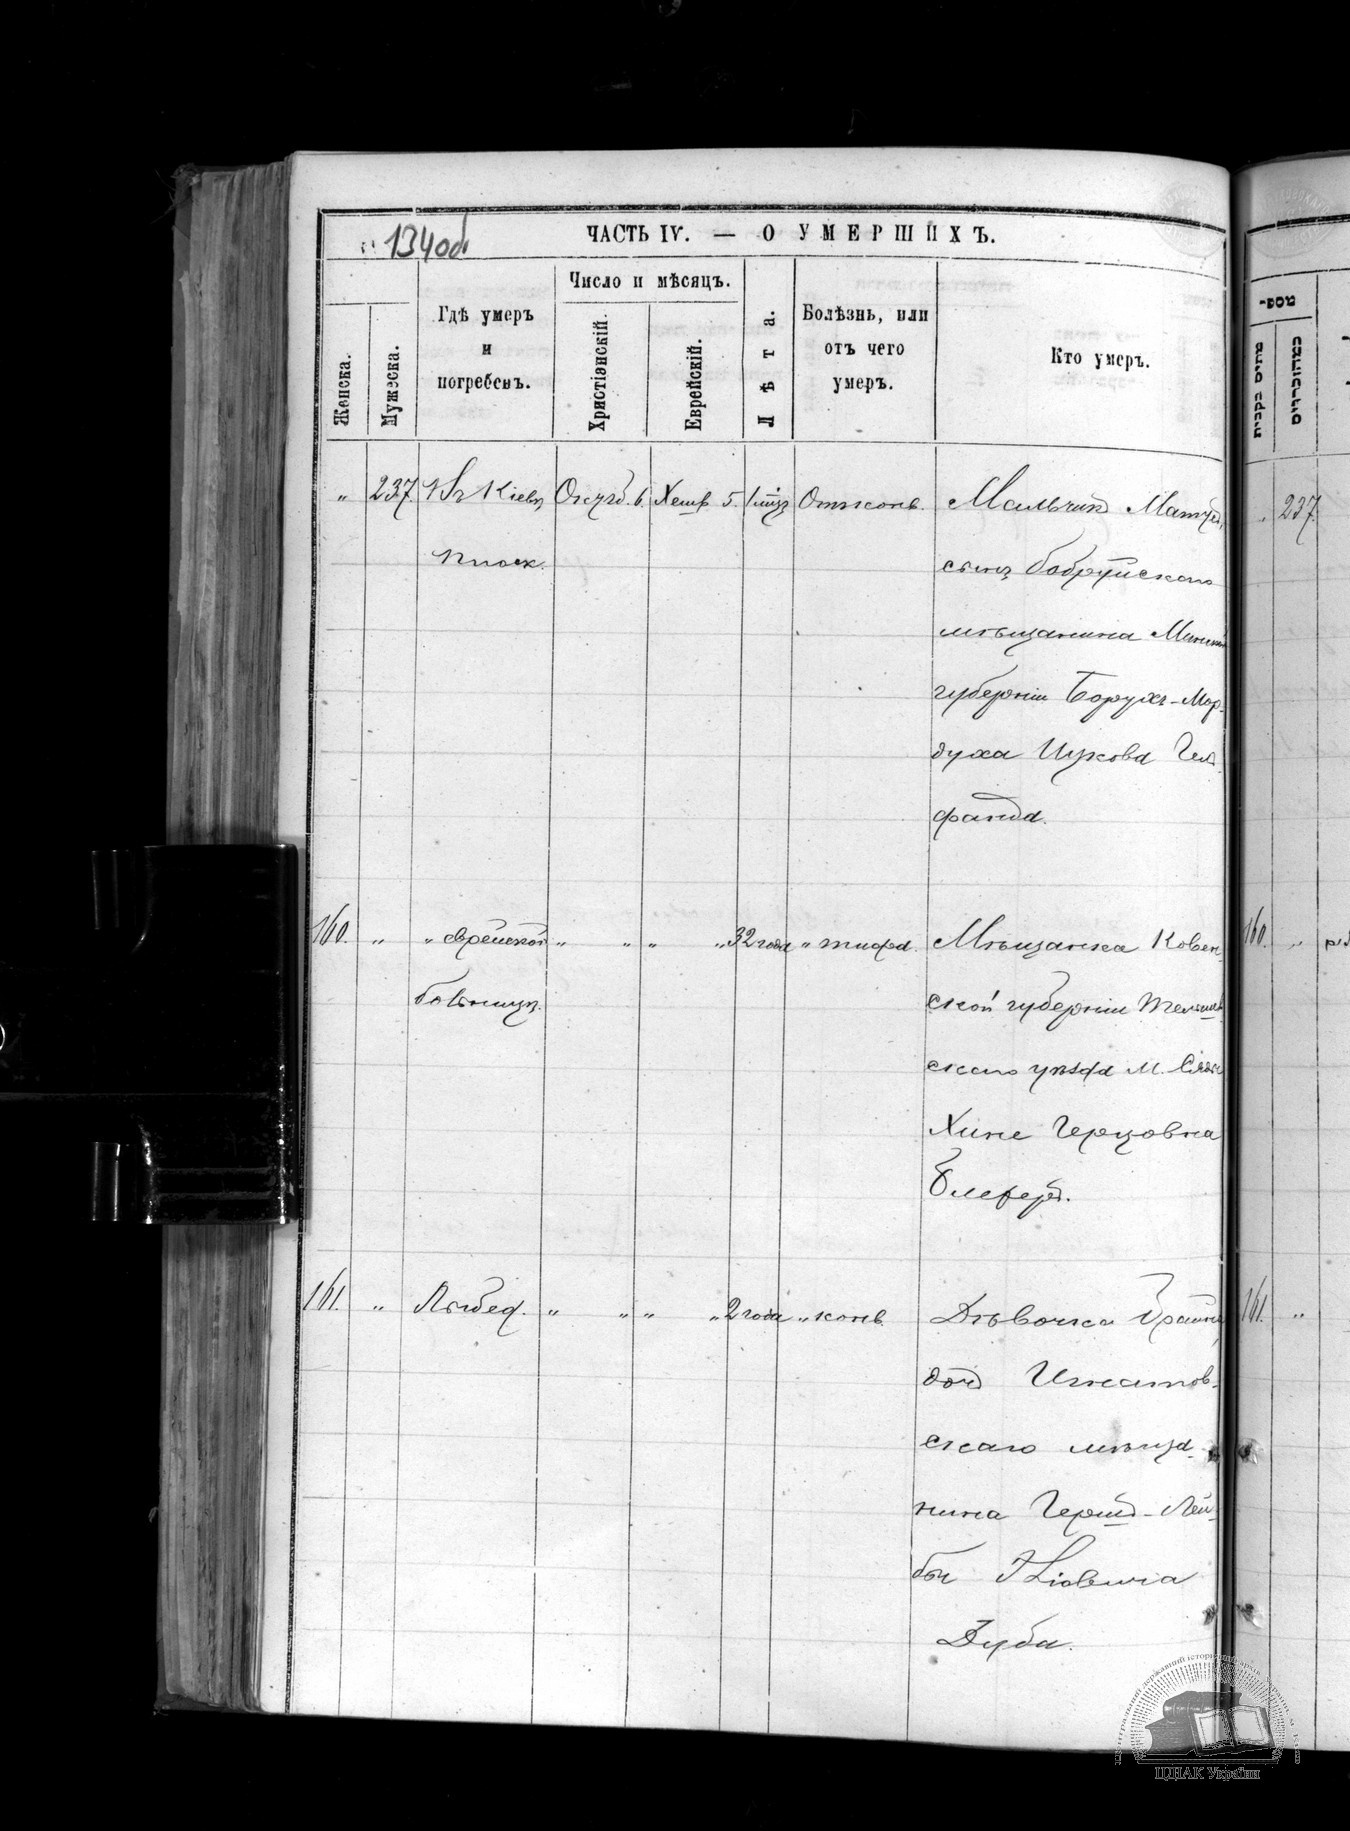 134об
ЧАСТЬ IV. — О УМЕРШИХЪ.
Женска.
Мужеска.
Гдѣ умеръ
и
погребенъ.
Число и мѣсяцъ.
Христіэнскій.
Еврейскій.
Лѣта.
Болѣзнь, или
отъ чего
умеръ.
Кто умеръ.
" 237. Въ Кіевѣ Октяб. 6. Хешв. 5. 1 мѣц Отъ конв. Мальчикъ
Плоск. сынъ Бобруйскаго
мѣщанина Минской
губерніи Борухъ-Мор-
духа Ицкова Гель-
фанда.
160. " " еврейской " " " " 32 года " тифа. Мѣщанка Ковен-
больницѣ. ской губерніи Тельшев
скаго уѣзда М.
Хине Герцовна
161. " Лыбед. " " " " 2 года " конв. Дѣвочка Брайна
дочь Игнатов-
скаго мѣща-
нина Гершъ-Лей-
бы
Дуба.
237.
160. "
161. "
ЦДІАК України